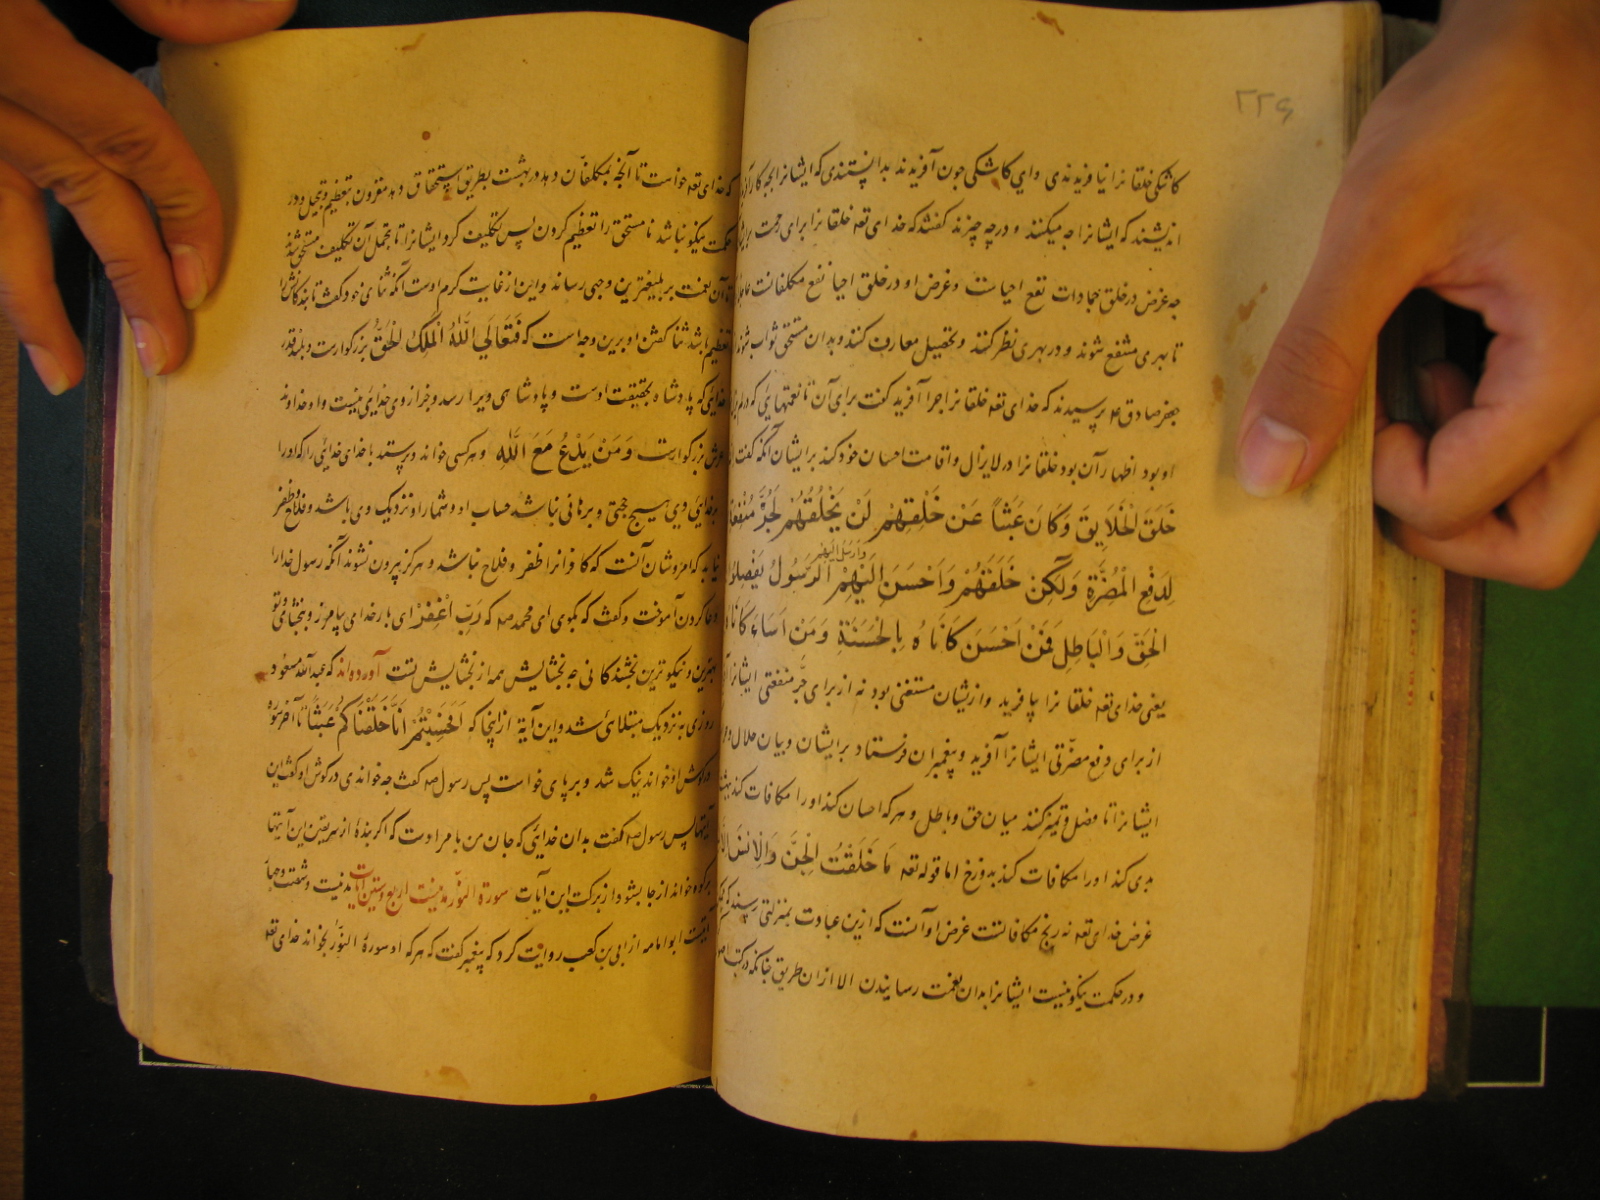 ۲۲۶
کاشکی خلقانرا نیافریدندی و ای کاشکی چون آفریدند بدانستندی که ایشانرا بچه کار آفریدند
اندیشند که ایشانرا چه میکنند و در چه چیزند گفتند که خدای تعه خلقانرا برای رحمت
چه غرض در خلق جمادات نفع احیاست و غرض او در خلق احیا نفع مکلفانست
تا بهری منتفع شوند و در بهری نظر کنند و تحصیل معارف کنند و بدان مستحق ثواب شوند
جعفر صادق ع پرسیدند که خدای تعه خلقانرا چرا آفرید گفت برای آن تا نعتهایی که در ازل
او بود اظهار آن بود خلقانرا در لایزال و اقامت احسان خود کند بر ایشان آنکه گفت
خَلَقَ الْخَلَایِقَ وَکَانَ عَبَثاً عَنْ خَلْقِهِمْ لَنْ یَخْلُقَهُمْ لِجَرِّ مُنْفِعَة
لِدَفْعِ الْمُضَرَّةِ وَلَکِنْ خَلَقَهُمْ وَاَحْسَنَ اِلَیْهِمْ وارسل الیهم الرَّسُولَ یَفْصِلُوا
الْحَقَّ وَالْبَاطِلَ فَمَنْ اَحْسَنَ کَافَاهُ بِالْحَسَنَةِ وَمَنْ اَسَاءَ کَافَا
یعنی خدای تعه خلقانرا بیافرید و ازیشان مستغنی بود نه از برای جرّ منفعتی ایشانرا آفرید
از برای دفع مضرّتی ایشانرا آفرید و پیغمبران فرستاد بر ایشان و بیان حلال و حرام
ایشانرا تا وصل و تمیز کنند میان حق و باطل و هر که احسان کند او را مکافات کند ببهشت
بدی کند او را مکافات کند بدوزخ اما قوله تعه مَا خَلَقْتُ الْجِنَّ وَالْاِنْسَ اِلَّا
غرض خدای تعه نه رنج مکافانست غرض او آنست که ازین عبادت بمنزلتی رسند که
و در حکمت نیکو نیست ایشانرا بدان نعمت رسانیدن الا ازان طریق چنانکه در کتب اصول
که خدای تعه خواست تا آنچه بمکلفان دهد در بهشت بطریق استحقاق دهد مقرون بتعظیم و تبجیل و در
حکمت نیکو نباشد نامستحق را تعظیم کردن پس تکلیف کرد ایشانرا تا بتحمل آن تکلیف مستحق شوند
آن نعمت بر بلیغترین وجهی رساند و این از غایت کرم اوست آنکه ثنای خود گفت تا بندگانش را
تعظیم باشد ثنا گفتن او برین وجه است که فَتَعَالَی اللّٰهُ الْمَلِکُ الْحَقُّ بزرگوارست و بلند قدر
خدایی که پادشاه بحقیقت اوست و پادشاهی ویرا رسد و جز از وی خدایی نیست و او خداوند
عرش بزرگوارست وَمَنْ یَدْعُ مَعَ اللّٰهِ و هر کسی خواند و پرستد با خدای خدایی را که او را
بخدایی وی هیچ حجتی و برهانی نباشد حساب او و شمار او نزدیک وی باشد و فلاح و ظفر
نیابد که امر و شان آنست که کافرانرا ظفر و فلاح نباشد و هرگز بیرون نشوند آنکه رسول خدا را
دعا کردن آموخت و گفت که بگوی ای محمد صه که رَبِّ اغْفِرْ ای بار خدای بیامرز و ببخشای و تو
بهترین و نیکوترین بخشندگانی چه بخشایش همه از بخشایش تست آورده‌اند که عبدالله مسعود
روزی به نزدیک مبتلائی شد و این آیة ازینجا که اَفَحَسِبْتُمْ اَنَّمَا خَلَقْنَاکُمْ عَبَثًا تا آخر سوره
در گوش او خواند نیک شد و بر پای خواست پس رسول صه گفت چه خواندی در گوش او گفت این
آیتها پس رسول صه گفت بدان خدایی که جان من بامر اوست که اگر بندهٔ از سر یقین این آیتها
بر کوه خواند از جا بشود از برکت این آیات سورة النّور مدنیت اربع و ستین آیات مدنیست و شصت و چهار
آیتست ابو امامه از ابی بن کعب روایت کرد که پیغمبر گفت که هر که او سورة النّور بخواند خدای تعه